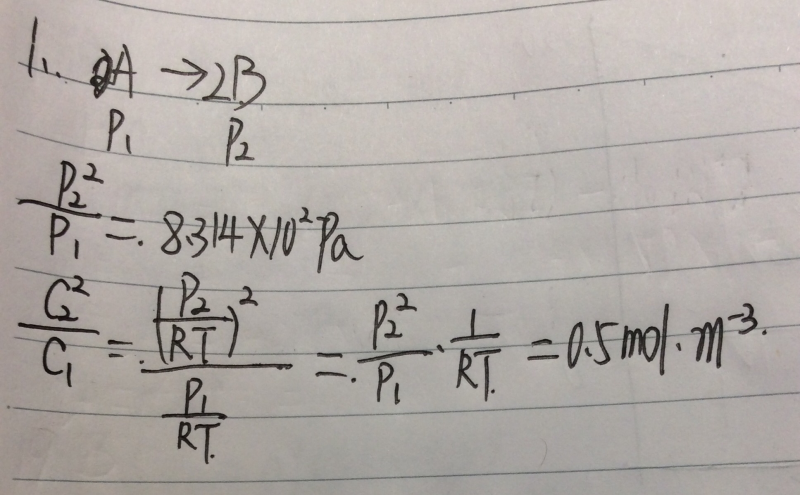 1. A → 2B
P₁ P₂
P₂²/P₁ = 8.314×10² Pa
C₂²/C₁ = (P₂/RT)²/(P₁/RT) = P₂²/P₁ · 1/RT = 0.5 mol·m⁻³.